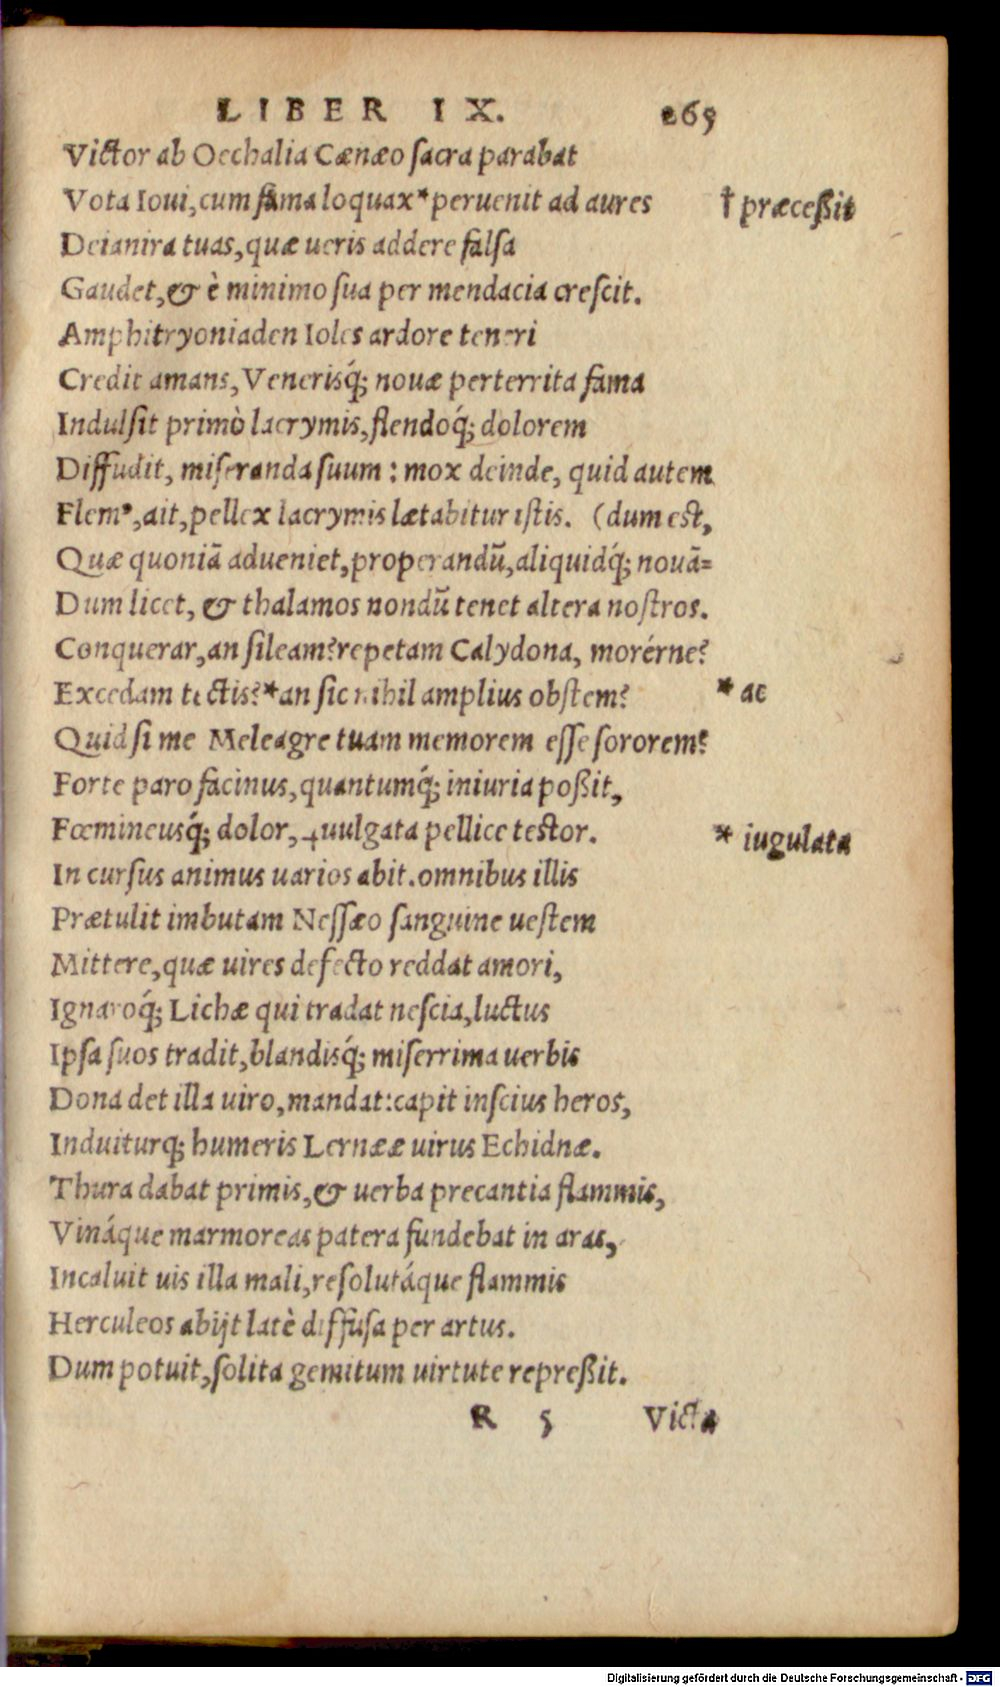 LIBER IX. 265
Victor ab Oechalia Cænæo sacra parabat
Vota Ioui, cum fama loquax*peruenit ad aures †præceßit
Deianira tuas, quæ ueris addere falsa
Gaudet, & è minimo sua per mendacia crescit.
Amphitryoniaden Ioles ardore teneri
Credit amans, Venerisq́; nouæ perterrita fama
Indulsit primò lacrymis, flendoq́; dolorem
Diffudit, miseranda suum: mox deinde, quid autem
Flem⁹, ait, pellex lacrymis lætabitur istis. (dum est,
Quæ quoniā adueniet, properandū, aliquidq́; nouā=
Dum licet, & thalamos nondū tenet altera nostros.
Conquerar, an sileam? repetam Calydona, morérne?
Excedam tectis?*an sic nihil amplius obstem? *ac
Quid si me Meleagre tuam memorem esse sororem?
Forte paro facinus, quantumq́; iniuria poßit,
Fœmineusq́; dolor, ⁺uulgata pellice testor. * iugulata
In cursus animus uarios abit. omnibus illis
Prætulit imbutam Nessæo sanguine uestem
Mittere, quæ uires defecto reddat amori,
Ignaroq́; Lichæ qui tradat nescia, luctus
Ipsa suos tradit, blandisq́; miserrima uerbis
Dona det illa uiro, mandat: capit inscius heros,
Induiturq; humeris Lernææ uirus Echidnæ.
Thura dabat primis, & uerba precantia flammis,
Vináque marmoreas patera fundebat in aras,
Incaluit uis illa mali, resolutáque flammis
Herculeos abijt latè diffusa per artus.
Dum potuit, solita gemitum uirtute represßit.
R 5 Victa
Digitalisierung gefördert durch die Deutsche Forschungsgemeinschaft - DFG